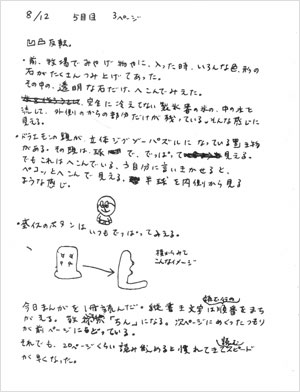 8/12 5日目 3ページ
凹凸反転。
・前、牧場でみやげ物やに、入った時、いろんな色、形の
石がたくさんつみ上げてあった。
その中の、透明な石だけ、へこんでみえた。
完全に冷えてない製氷器の氷の、中の水を
流して、外側の からの部分だけが残っている。そんな感じに
見える。
・ドラえもんの頭が、立体ジグソーパズルになっている置き物
がある。その頭は、球 で、でっぱって 見える。
でもこれはへこんでいる、と自分に言いきかせると、
ペコッとへこんで見える。 半球を内側から見る
ような感じ。
・電化のボタンはいつもでっぱってみえる。
横からみて
こんなイメージ
今日まんがを1冊読んだ。縦書き文字は順番をまち
がえる。 「ちん」になる。次ページにめくったつもり
が前ページにもどっている。
それでも、20ページくらい読み始めると慣れてきてスピード
が早くなった。